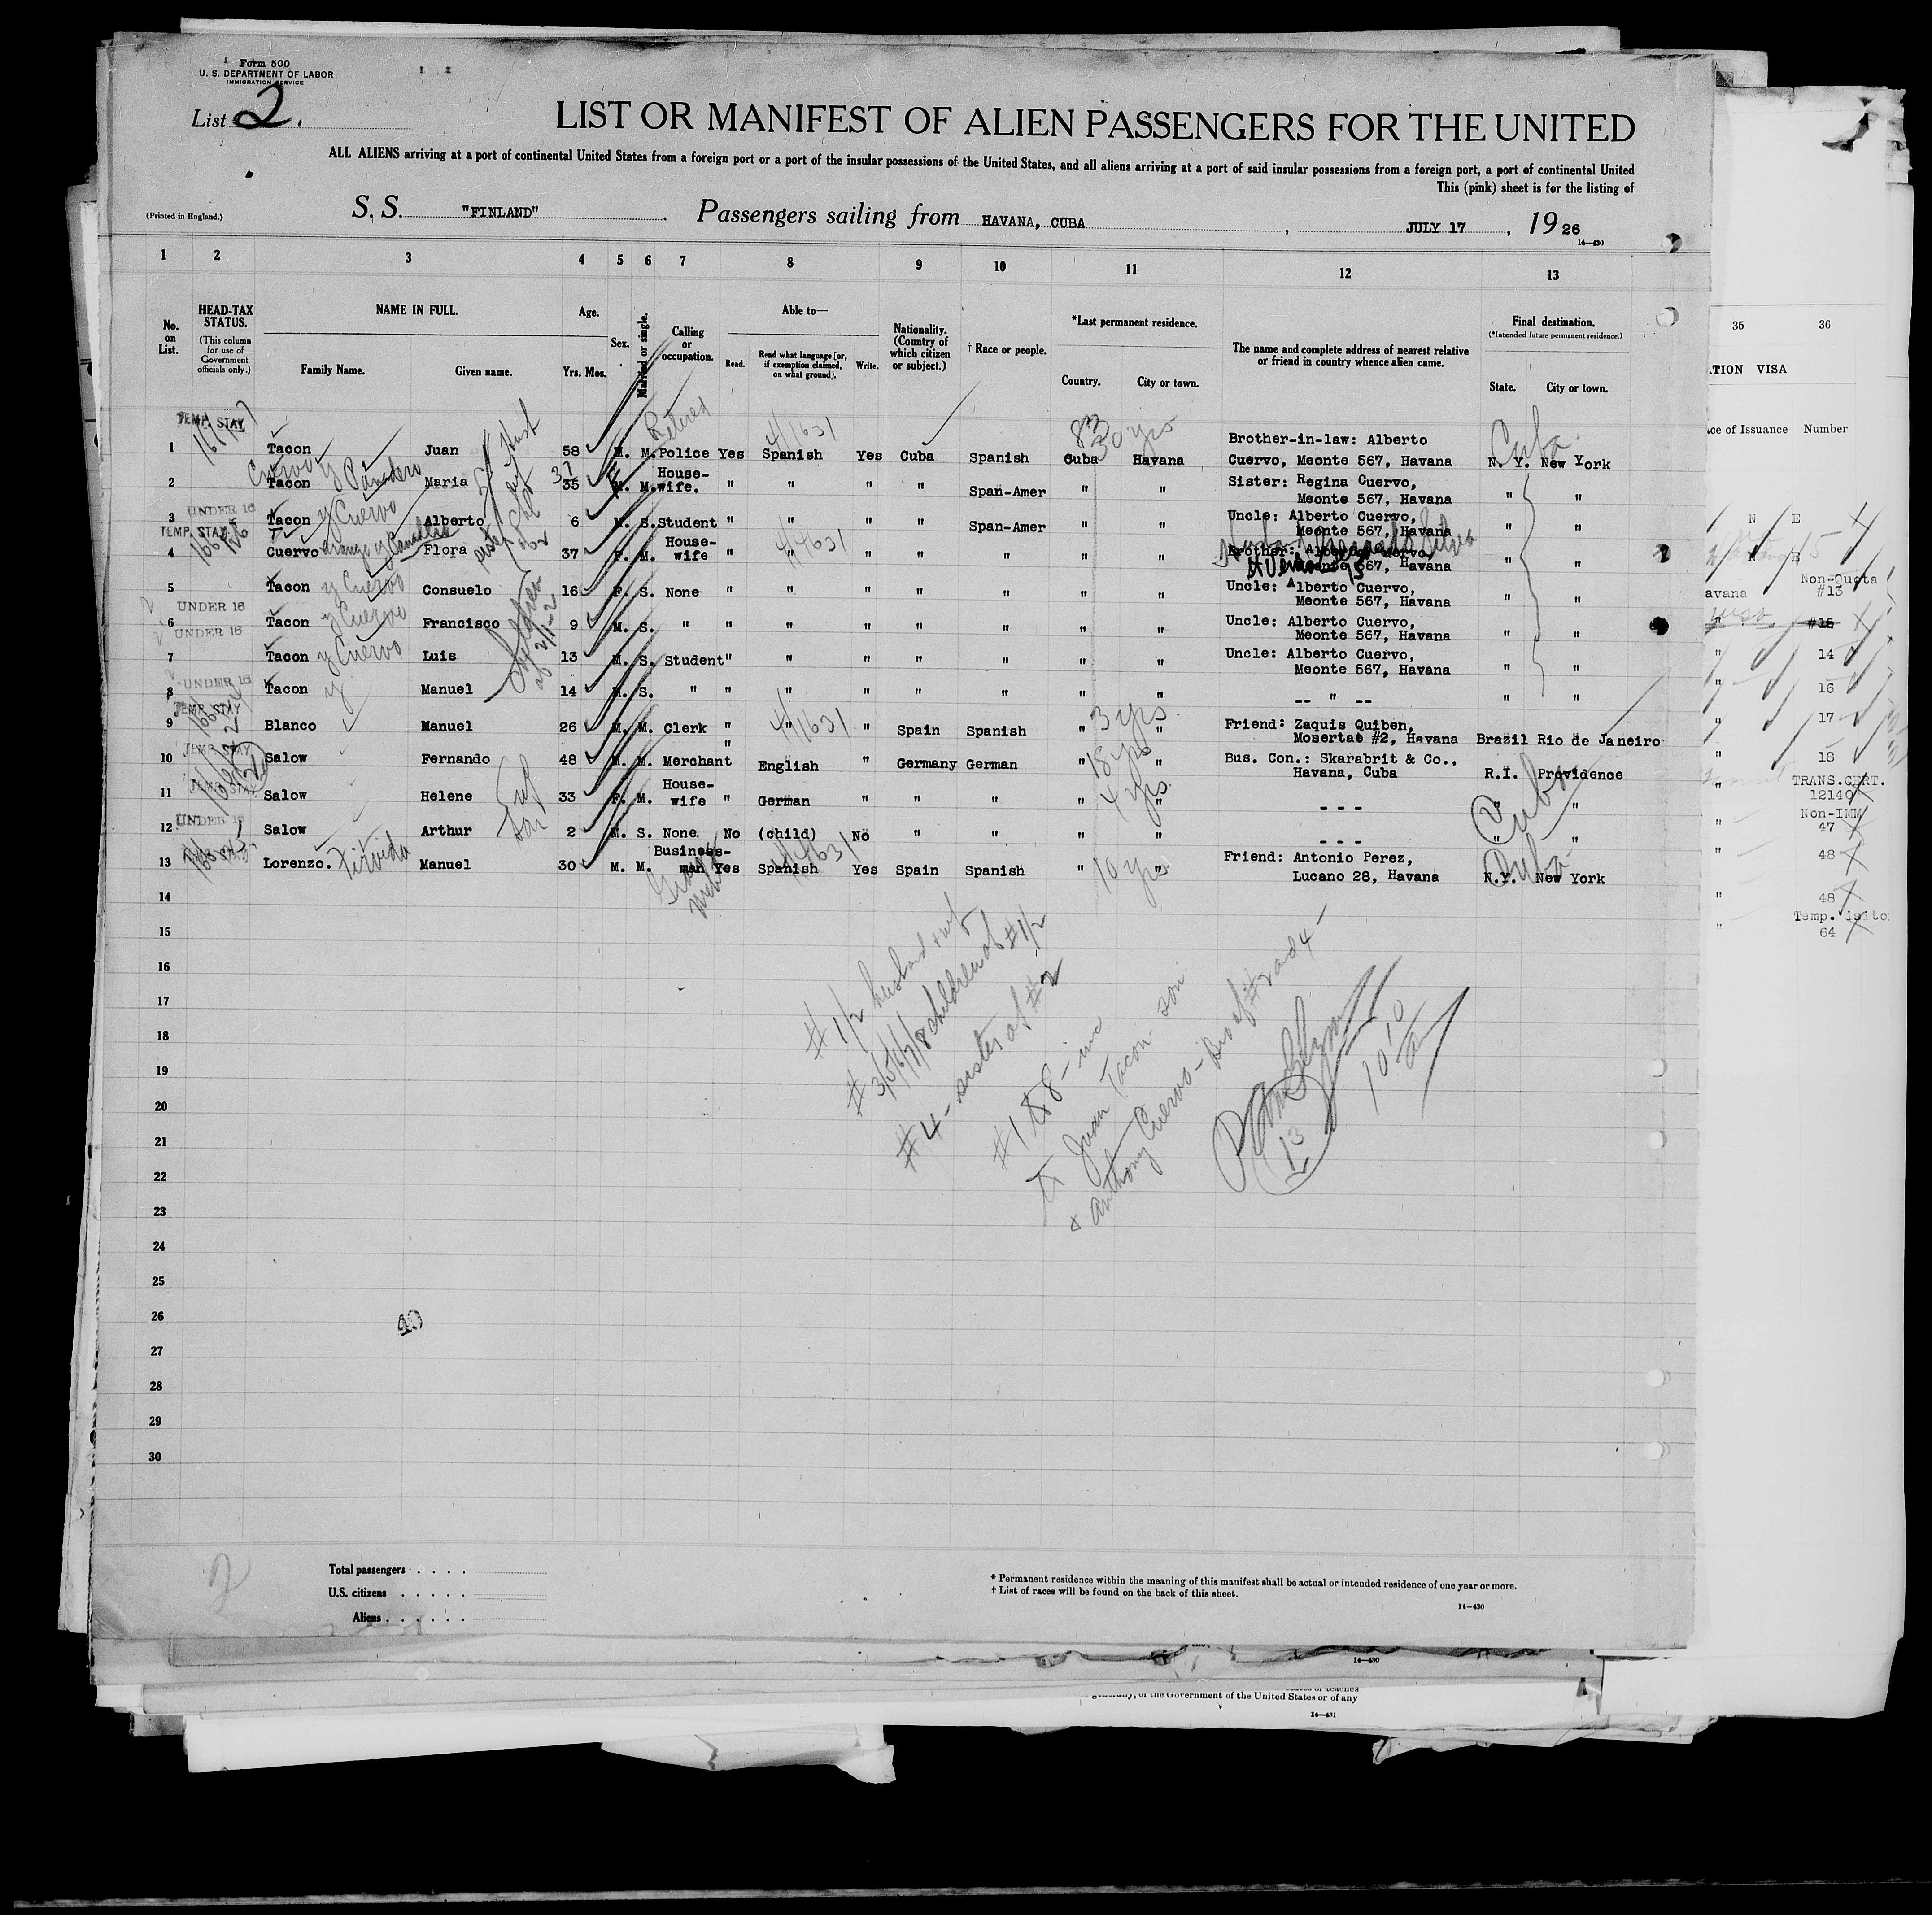 Form 500
U. S. DEPARTMENT OF LABOR
IMMIGRATION SERVICE
List 2.
LIST OR MANIFEST OF ALIEN PASSENGERS FOR THE UNITED
ALL ALIENS arriving at a port of continental United States from a foreign port or a port of the insular possessions of the United States, and all aliens arriving at a port of said insular possessions from a foreign port, a port of continental United
This (pink) sheet is for the listing of
(Printed in England.) S. S. "FINLAND" Passengers sailing from HAVANA, CUBA , JULY 17 , 19 26
14—430
1 2 3 4 5 6 7 8 9 10 11 12 13
No. on List. HEAD-TAX STATUS. (This column for use of Government officials only.) NAME IN FULL. Family Name. Given name. Age. Yrs. Mos. Sex. Married or single. Calling or occupation. Able to— Read. Read what language [or, if exemption claimed, on what ground]. Write. Nationality. (Country of which citizen or subject.) † Race or people. *Last permanent residence. Country. City or town. The name and complete address of nearest relative or friend in country whence alien came. Final destination. (*Intended future permanent residence.) State. City or town.
35 36
TION VISA
ce of Issuance Number
TEMP. STAY Retired 30 yrs Cuba
1 Tacon Juan 58 M. M. Police Yes Spanish Yes Cuba Spanish Cuba Havana Brother-in-law: Alberto Cuervo, Meonte 567, Havana N. Y. New York
Cuervo y
2 Tacon Maria 35 37 M. M. House-wife. " " " " Span-Amer " " Sister: Regina Cuervo, Meonte 567, Havana " "
UNDER 16
3 Tacon y Cuervo Alberto 6 M. S. Student " " " " Span-Amer " " Uncle: Alberto Cuervo, Meonte 567, Havana " "
TEMP. STAY
4 Cuervo Flora 37 F. M. House-wife " " " " " " " Brother: Alberto Cuervo, Meonte 567, Havana " "
5 Tacon y Cuervo Consuelo 16 F. S. None " " " " " " " Uncle: Alberto Cuervo, Meonte 567, Havana " "
UNDER 16
6 Tacon y Cuervo Francisco 9 M. S. " " " " " " " " Uncle: Alberto Cuervo, Meonte 567, Havana " "
UNDER 16
7 Tacon y Cuervo Luis 13 M. S. Student " " " " " " " Uncle: Alberto Cuervo, Meonte 567, Havana " "
UNDER 16
8 Tacon y Manuel 14 M. S. " " " " " " " " -- " -- " "
TEMP. STAY 3 yrs.
9 Blanco Manuel 26 M. M. Clerk " " " Spain Spanish " " Friend: Zaquis Quiben, Mosertae #2, Havana Brazil Rio de Janeiro
TEMP. STAY 18 yrs
10 Salow Fernando 48 M. M. Merchant " English " Germany German " " Bus. Con.: Skarabrit & Co., Havana, Cuba R.I. Providence
TEMP. STAY 4 yrs.
11 Salow Helene 33 F. M. House-wife " German " " " " " - - - " "
UNDER 16 Cuba
12 Salow Arthur 2 M. S. None No (child) No " " " " - - - " "
10 yrs Cuba
13 Lorenzo. Manuel 30 M. M. Business-man Yes Spanish Yes Spain Spanish " " Friend: Antonio Perez, Lucano 28, Havana N.Y. New York
children of 1/2
N E 4
N E 5
Non-Quota
avana #13
" #15
" 14
" 16
" 17
" 18
TRANS.CERT.
" 12140
Non-IMM
" 47
" 48
" 48
Temp.
" 64
14
15
16
17
18
19
20
21
22
23
24
25
26
27
28
29
30
# 1/2 husband & wife
# 3/5/6/7/8 children of #1/2
# 4 - sister of # 2
Juan Tacon son
& Anthony Cuervo - Bro of #2 and 4 -
13
10/10
40
2
Total passengers . . . .
U.S. citizens . . . . .
Aliens . . . . . .
* Permanent residence within the meaning of this manifest shall be actual or intended residence of one year or more.
† List of races will be found on the back of this sheet.
14—430
14—430
generally, of the Government of the United States or of any
14—431